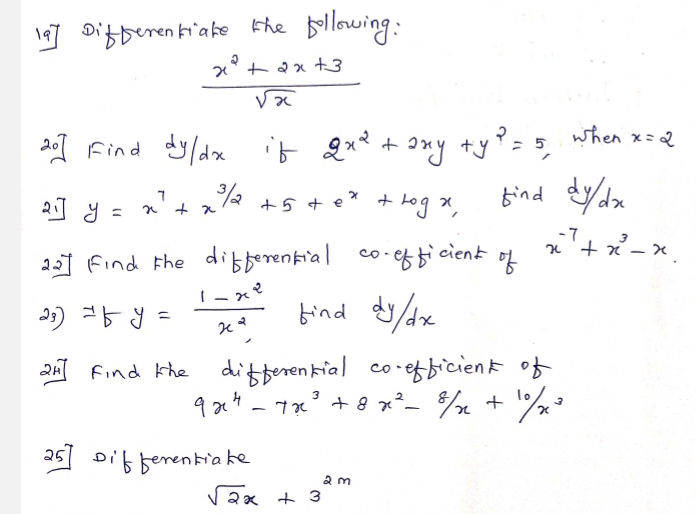 19] Differentiate the following:
x² + 2x + 3
√x
20] Find dy/dx if 2x² + 2xy + y² = 5, when x = 2
21] y = x⁷ + x^3/2 + 5 + eˣ + log x, find dy/dx
22] Find the differential co-efficient of x⁻⁷ + x³ - x.
23) If y = 1 - x² / x², find dy/dx
24] Find the differential co-efficient of
9x⁴ - 7x³ + 8x² - 8/x + 10/x³
25] Differentiate
√2x + 3^2m